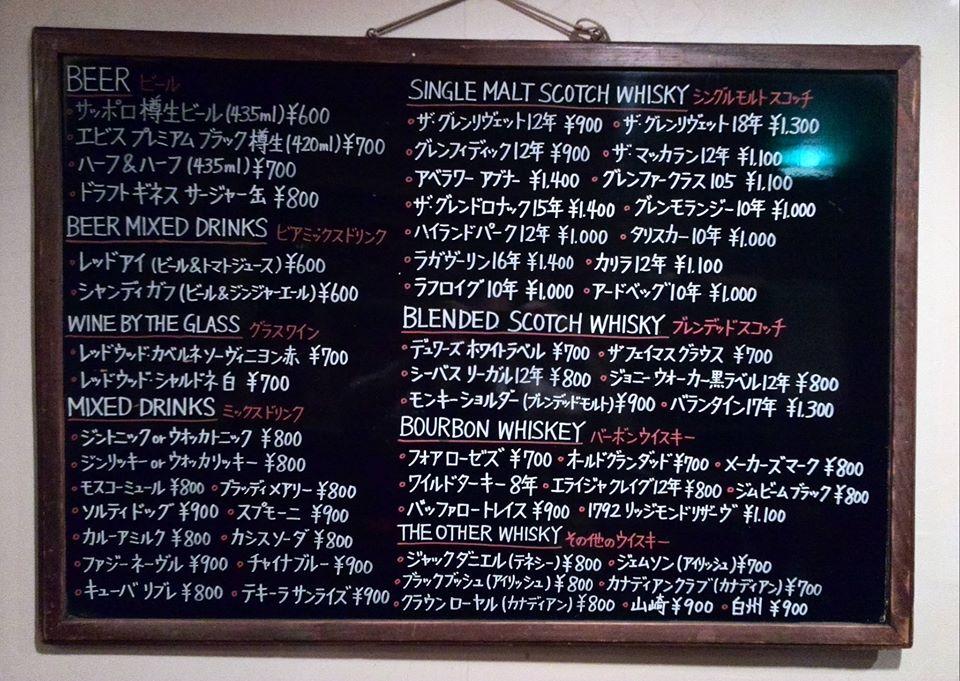 BEER ビール
・サッポロ 樽生ビール(435ml)¥600
・エビス プレミアム ブラック 樽生(420ml)¥700
・ハーフ&ハーフ(435ml)¥700
・ドラフトギネス サージャー缶 ¥800
BEER MIXED DRINKS ビアミックスドリンク
・レッドアイ(ビール&トマトジュース)¥600
・シャンディガフ(ビール&ジンジャーエール)¥600
WINE BY THE GLASS グラスワイン
・レッドウッド・カベルネソーヴィニヨン赤 ¥700
・レッドウッド・シャルドネ白 ¥700
MIXED DRINKS ミックスドリンク
・ジントニック or ウオッカトニック ¥800
・ジンリッキー or ウオッカリッキー ¥800
・モスコーミュール ¥800 ・ブラッディメアリー ¥800
・ソルティドッグ ¥900 ・スプモーニ ¥900
・カルーアミルク ¥800 ・カシスソーダ ¥800
・ファジーネーヴル ¥900 ・チャイナブルー ¥900
・キューバリブレ ¥800 ・テキーラサンライズ ¥900
SINGLE MALT SCOTCH WHISKY シングルモルトスコッチ
・ザ・グレンリヴェット12年 ¥900 ・ザ・グレンリヴェット18年 ¥1.300
・グレンフィディック12年 ¥900 ・ザ・マッカラン12年 ¥1.100
・アベラワー アブナー ¥1.400 ・グレンファークラス105 ¥1.100
・ザ・グレンドロナック15年 ¥1.400 ・グレンモランジー10年 ¥1.000
・ハイランドパーク12年 ¥1.000 ・タリスカー10年 ¥1.000
・ラガヴーリン16年 ¥1.400 ・カリラ12年 ¥1.100
・ラフロイグ10年 ¥1.000 ・アードベッグ10年 ¥1.000
BLENDED SCOTCH WHISKY ブレンデッドスコッチ
・デュワーズ ホワイトラベル ¥700 ・ザフェイマスグラウス ¥700
・シーバスリーガル12年 ¥800 ・ジョニーウォーカー黒ラベル12年 ¥800
・モンキーショルダー(ブレンデッドモルト)¥900 ・バランタイン17年 ¥1.300
BOURBON WHISKEY バーボンウイスキー
・フォアローゼズ ¥700 ・オールドグランダッド ¥700 ・メーカーズマーク ¥800
・ワイルドターキー8年 ・エライジャクレイグ12年 ¥800 ・ジムビームブラック ¥800
・バッファロートレイス ¥900 ・1792リッジモンドリザーヴ ¥1.100
THE OTHER WHISKY その他のウイスキー
・ジャックダニエル(テネシー)¥800 ・ジェムソン(アイリッシュ)¥700
・ブラックブッシュ(アイリッシュ)¥800 ・カナディアンクラブ(カナディアン)¥700
・クラウンローヤル(カナディアン)¥800 ・山崎 ¥900 ・白州 ¥900